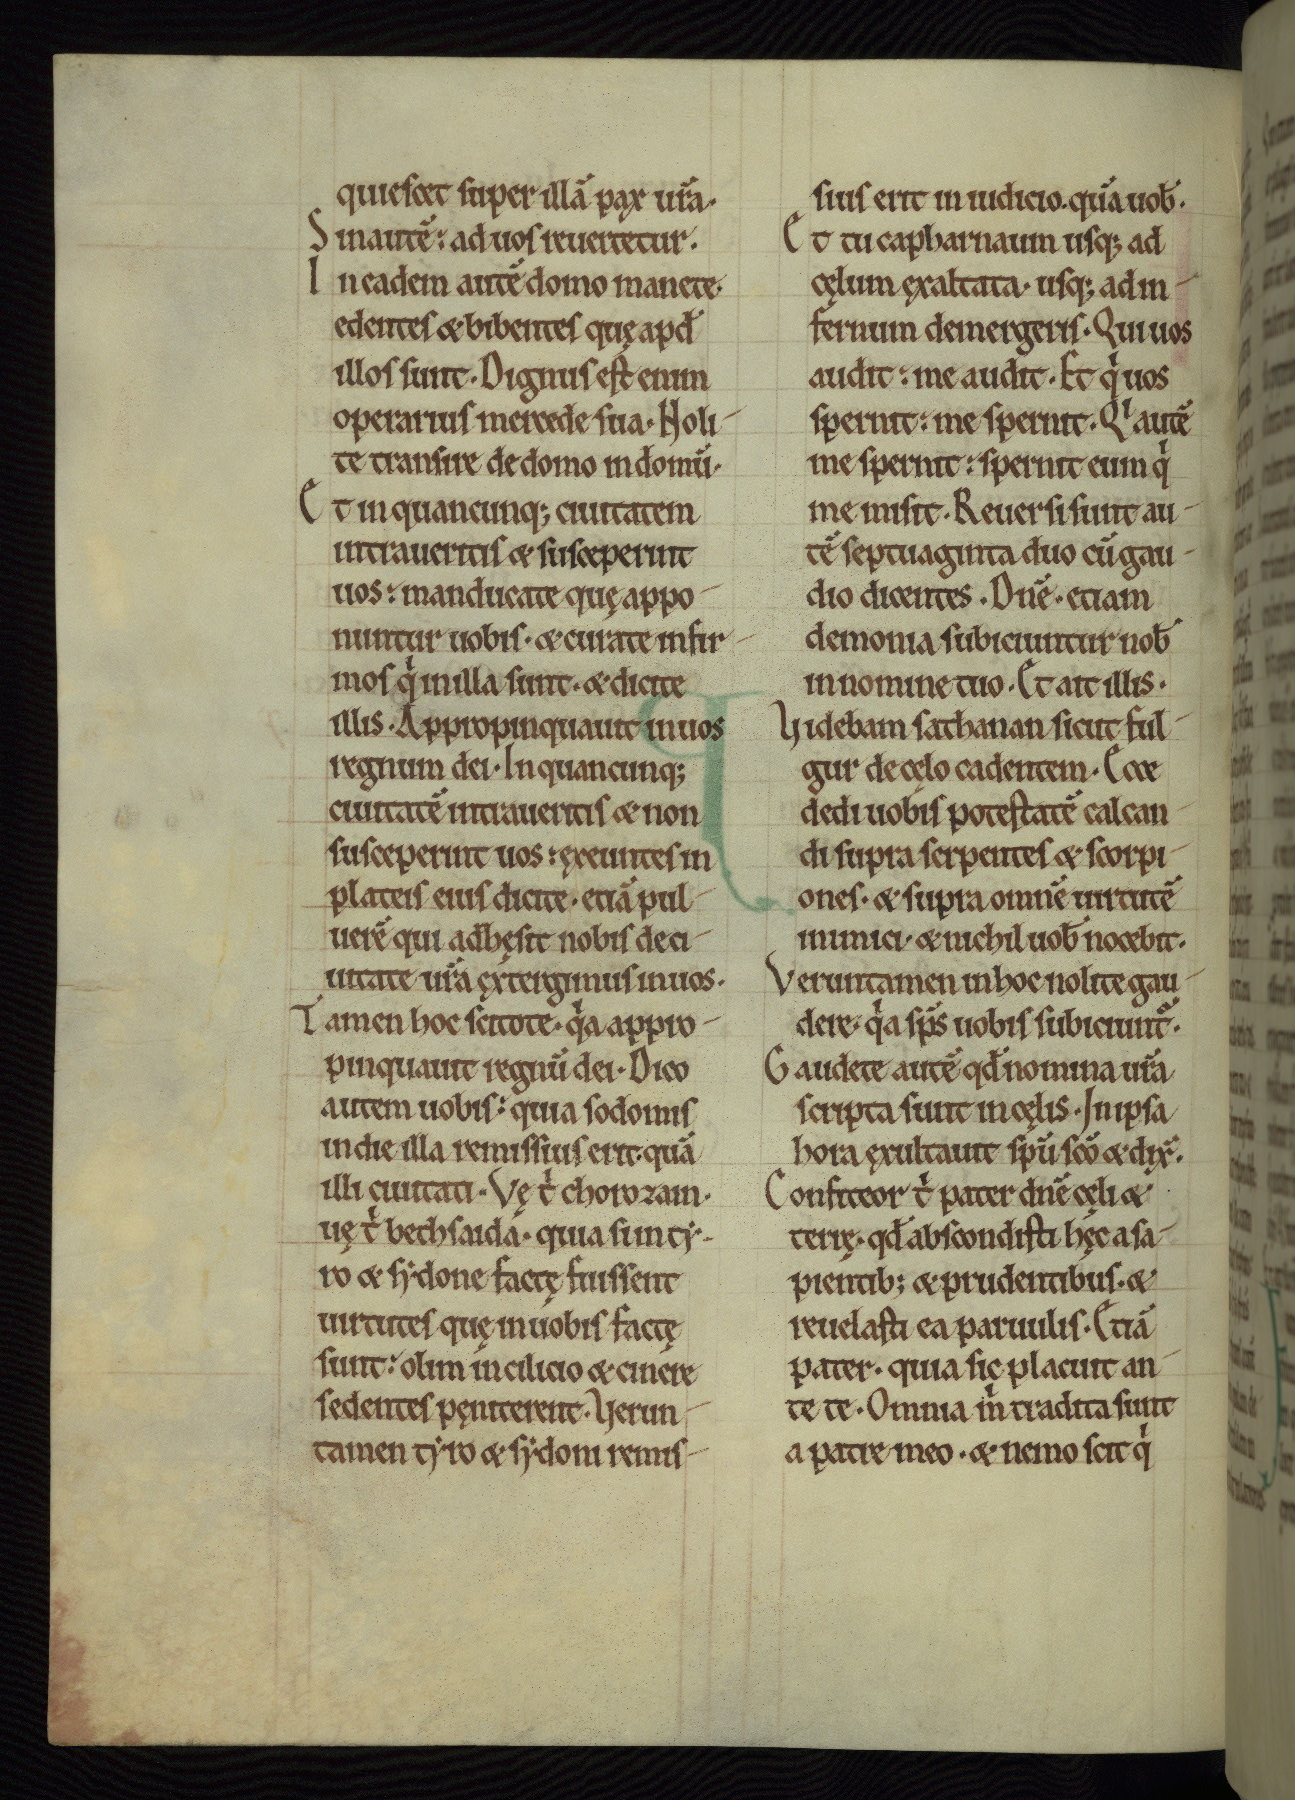 quiescet super illā pax ur̄a.
Sin autē: ad uos reuertetur.
In eadem autē domo manete.
edentes & bibentes quę apd̄
illos sunt. Dignus est enim
operarius mercede sua. Noli-
te transire de domo in domū.
Et in quancunq; ciuitatem
intraueritis & susceperint
uos: manducate quę appo-
nuntur uobis. & curate infir-
mos qͥ in illa sunt. & dicite
illis. Appropinquauit in uos
regnum dei. In quancunq;
ciuitatē intraueritis & non
susceperint uos: ęxeuntes in
plateis eius dicite. etiā pul-
uerē qui adhęsit nobis de ci-
uitate ur̄a ęxtergimus in uos.
Tamen hoc scitote. qͥa appro-
pinquauit regnū dei. Dico
autem uobis: quia sodomis
in die illa remissius erit. quā
illi ciuitati. Vę tͥ chorozam.
uę tͥ bechsaida. quia si in ty-
ro & sydone factę fuissent
uirtutes quę in uobis factę
sunt: olim in cilicio & cinere
sedentes pęniterent. Verun-
tamen tyro & sydoni remis-
sius erit in iudicio. quā uob̄.
Et tu capharnaum usq; ad
cęlum ęxaltata. usq; ad in-
fernum demergeris. Qui uos
audit: me audit. Et qͥ uos
spernit: me spernit. Qͥ autē
me spernit: spernit eum qͥ
me misit. Reuersi sunt au-
tē septuaginta duo cū gau-
dio dicentes. Dn̄e. etiam
demonia subiciuntur nob̄
in nomine tuo. Et ait illis.
Videbam sathanan sicut ful-
gur de cęlo cadentem. Ecce
dedi uobis potestatē calcan-
di supra serpentes & scorpi-
ones. & supra omnē uirtutē
inimici. & nichil uob̄ nocebit.
Veruntamen in hoc nolite gau-
dere. qͥa sp̄s uobis subiciunt᷑.
Gaudete autē qd̄ nomina ur̄a
scripta sunt in cęlis. In ipsa
hora ęxultauit sp̄u sc̄o & dix̄.
Confiteor tͥ pater dn̄e cęli &
terrę. qd̄ abscondisti hęc a sa-
pientib; & prudentibus. &
reuelasti ea paruulis. Etiā
pater. quia sic placuit an-
te te. Omnia m̄ͥ tradita sunt
a patre meo. & nemo scit qͥ